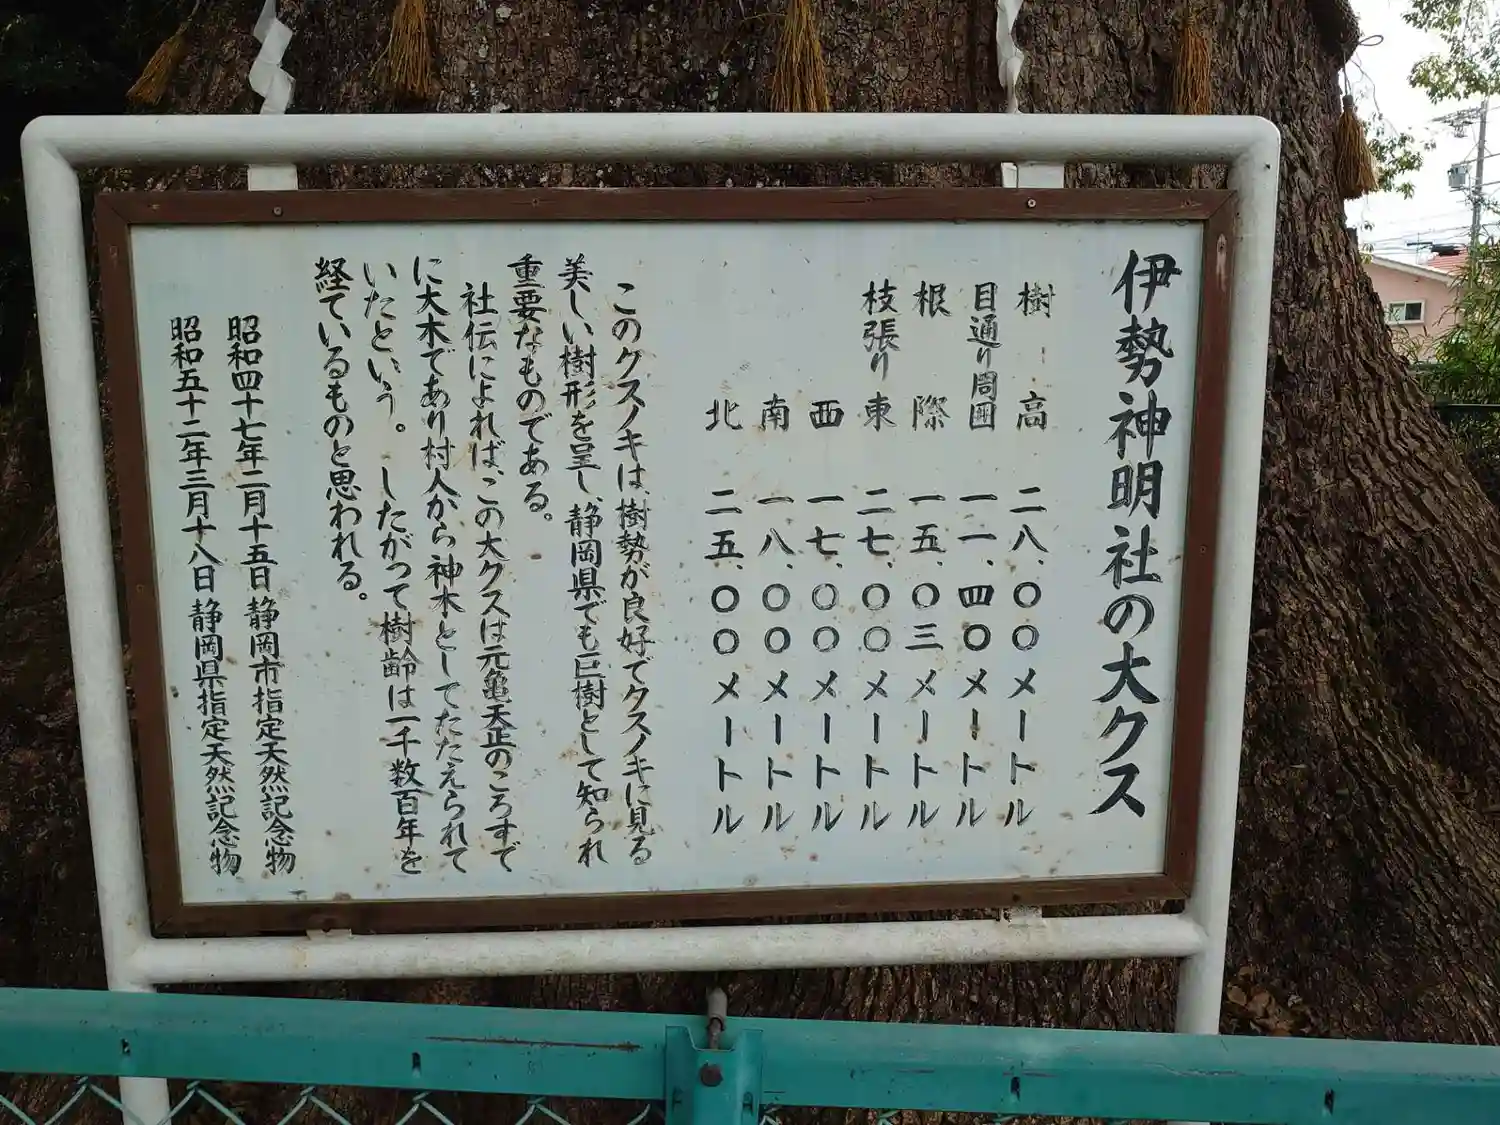 伊勢神明社の大クス
樹高 二八、〇〇メートル
目通り周囲 一一、四〇メートル
根際 一五、〇三メートル
枝張り 東 二七、〇〇メートル
西 一七、〇〇メートル
南 一八、〇〇メートル
北 二五、〇〇メートル
このクスノキは、樹勢が良好でクスノキに見る
美しい樹形を呈し、静岡県でも巨樹として知られ
重要なものである。
社伝によれば、この大クスは元亀、天正のころすで
に大木であり村人から神木としてたたえられて
いたという。したがって樹齢は一千数百年を
経ているものと思われる。
昭和四十七年二月十五日静岡市指定天然記念物
昭和五十二年三月十八日静岡県指定天然記念物